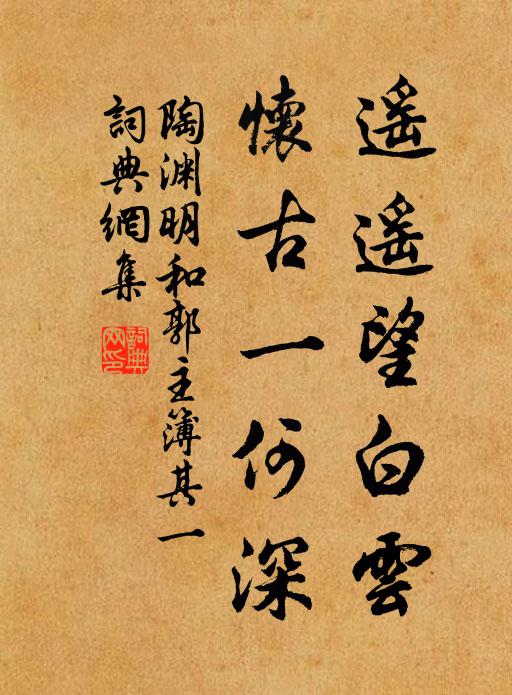 遥遥望白雲
懷古一何深
陶渊明和郭主簿其一
詞典網集
詞典网印